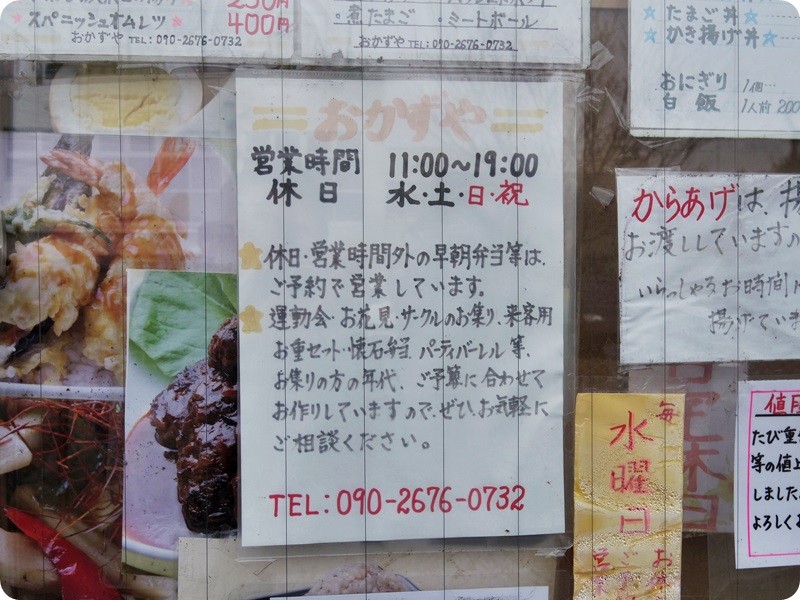 スパニッシュオムレツ
400円
おかずや TEL: 090-2676-0732
煮たまご ・ミートボール
おかずや TEL: 090-2676-0732
たまご丼
かき揚げ丼
おにぎり 1個…
白飯 1人前 200
おかずや
営業時間 11:00〜19:00
休日 水・土・日・祝
休日・営業時間外の早朝弁当等は、
ご予約で営業しています。
運動会・お花見・サークルのお集り、来客用
お重セット・懐石弁当、パーティバーレル等、
お集りの方の年代、ご予算に合わせて
お作りしていますので、ぜひ、お気軽に
ご相談ください。
TEL: 090-2676-0732
からあげは、揚
お渡ししていますの
いらっしゃるお時間に
揚げていま
毎
水曜日
定休日
値段
たび重
等の値上
しました。
よろしくお